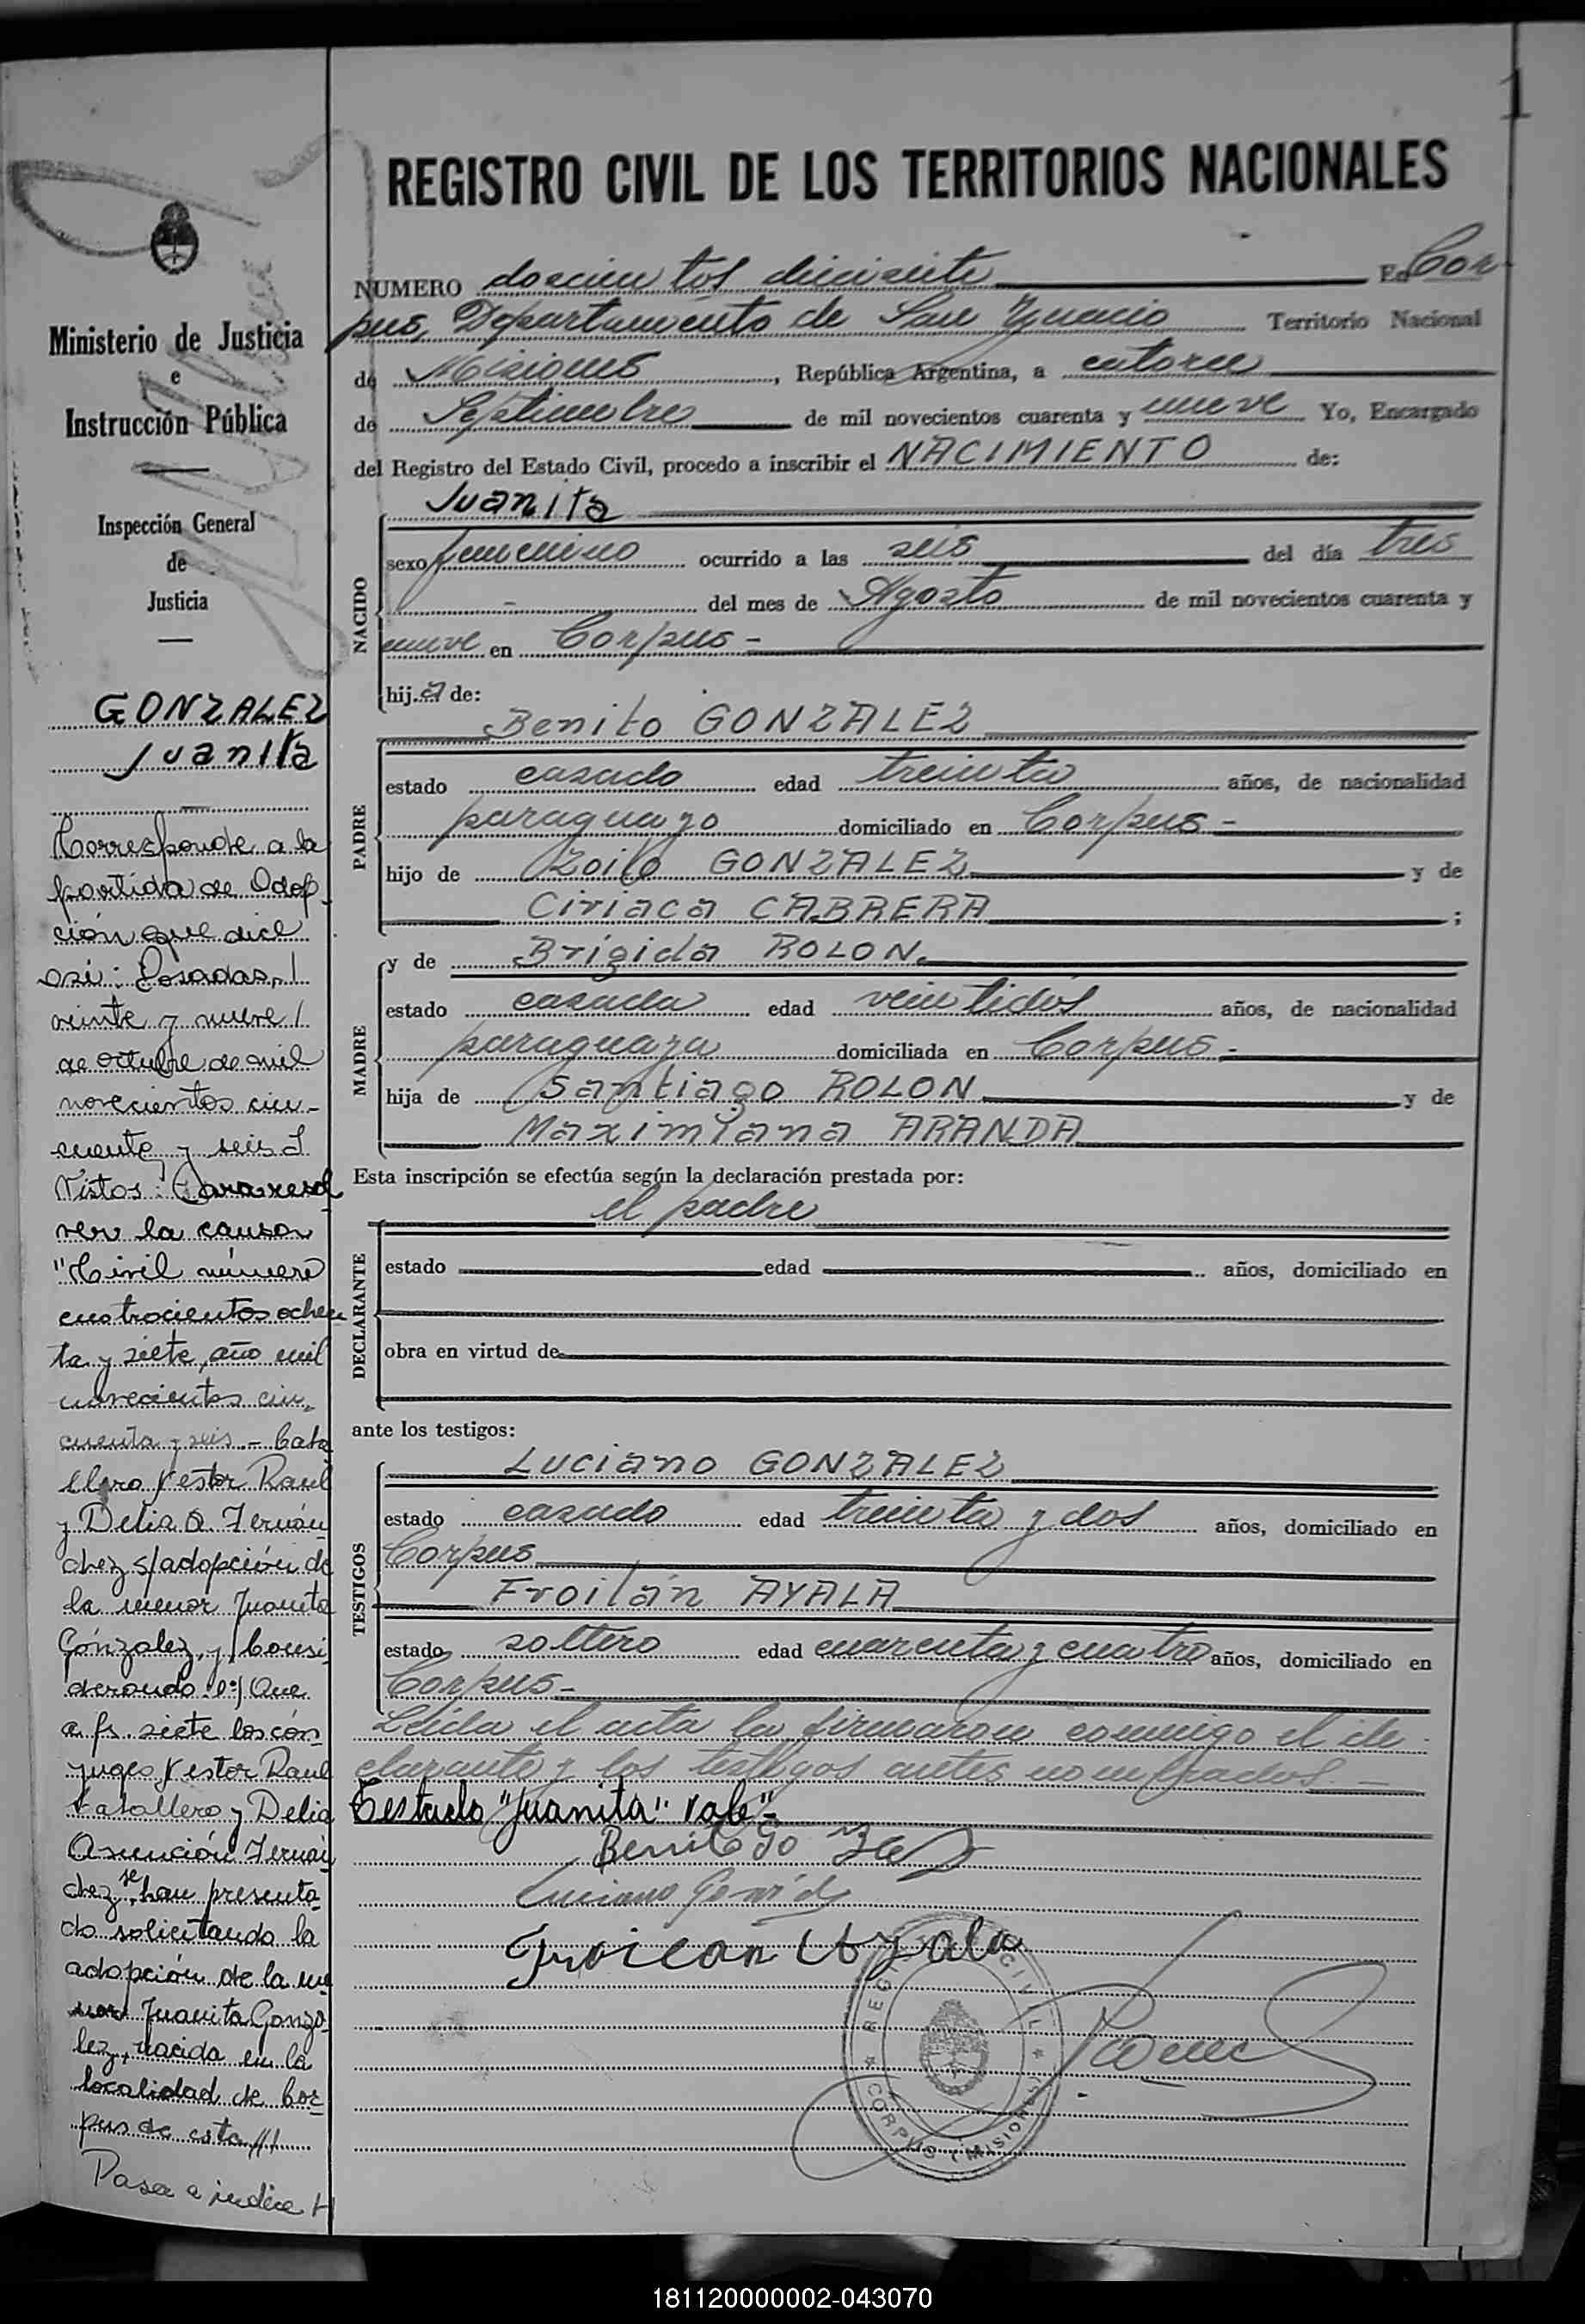 1
REGISTRO CIVIL DE LOS TERRITORIOS NACIONALES
Ministerio de Justicia
e
Instrucción Pública
Inspección General
de
Justicia
GONZALEZ
Juanita
Corresponde a la
partida de Adop-
ción que dice
asi: Posadas,
veinte y nueve
de octubre de mil
novecientos cin-
cuenta y seis
Vistos: Para resol
ver la causa
"Civil número
cuatrocientos ochen
ta y siete, año mil
novecientos cin-
cuenta y seis.- Caba
llero Nestor Raul
y Delia A Fernán
dez s/adopción de
la menor Juanita
Gónzalez, y Consi
derando: 1º) Que
a fs. siete los cón
yuges Nestor Raul
Caballero y Delia
Asunción Fernán
dez, se han presenta-
do solicitando la
adopción de la me
nor Juanita Gonza-
lez, nacida en la
localidad de Cor
pus de esta ///
Pasa a indice H
NUMERO doscientos diecisiete En Cor
pus, Departamento de San Ygnacio Territorio Nacional
de Misiones, República Argentina, a catorce
de Septiembre de mil novecientos cuarenta y nueve Yo, Encargado
del Registro del Estado Civil, procedo a inscribir el NACIMIENTO de:
Juanita
NACIDO
sexo femenino ocurrido a las seis del día tres
- del mes de Agosto de mil novecientos cuarenta y
nueve en Corpus -
hija de:
Benito GONZALEZ
PADRE
estado casado edad treinta años, de nacionalidad
paraguayo domiciliado en Corpus -
hijo de Zoilo GONZALEZ y de
Ciriaca CABRERA ;
y de Brígida ROLON.
MADRE
estado casada edad veintidós años, de nacionalidad
paraguaya domiciliada en Corpus.-
hija de Santiago ROLON y de
Maximiana ARANDA
Esta inscripción se efectúa según la declaración prestada por:
el padre
DECLARANTE
estado edad años, domiciliado en
obra en virtud de
ante los testigos:
Luciano GONZALEZ
TESTIGOS
estado casado edad treinta y dos años, domiciliado en
Corpus
Froilán AYALA
estado soltero edad cuarenta y cuatro años, domiciliado en
Corpus -
Leida el acta la firmaron conmigo el de-
clarante y los testigos antes nombrados.-
Testado "Juanita" vale"-
Benito Go
Luciano
Froilan Ayala
REGISTRO CIVIL
CORPUS (MISIONES)
181120000002-043070